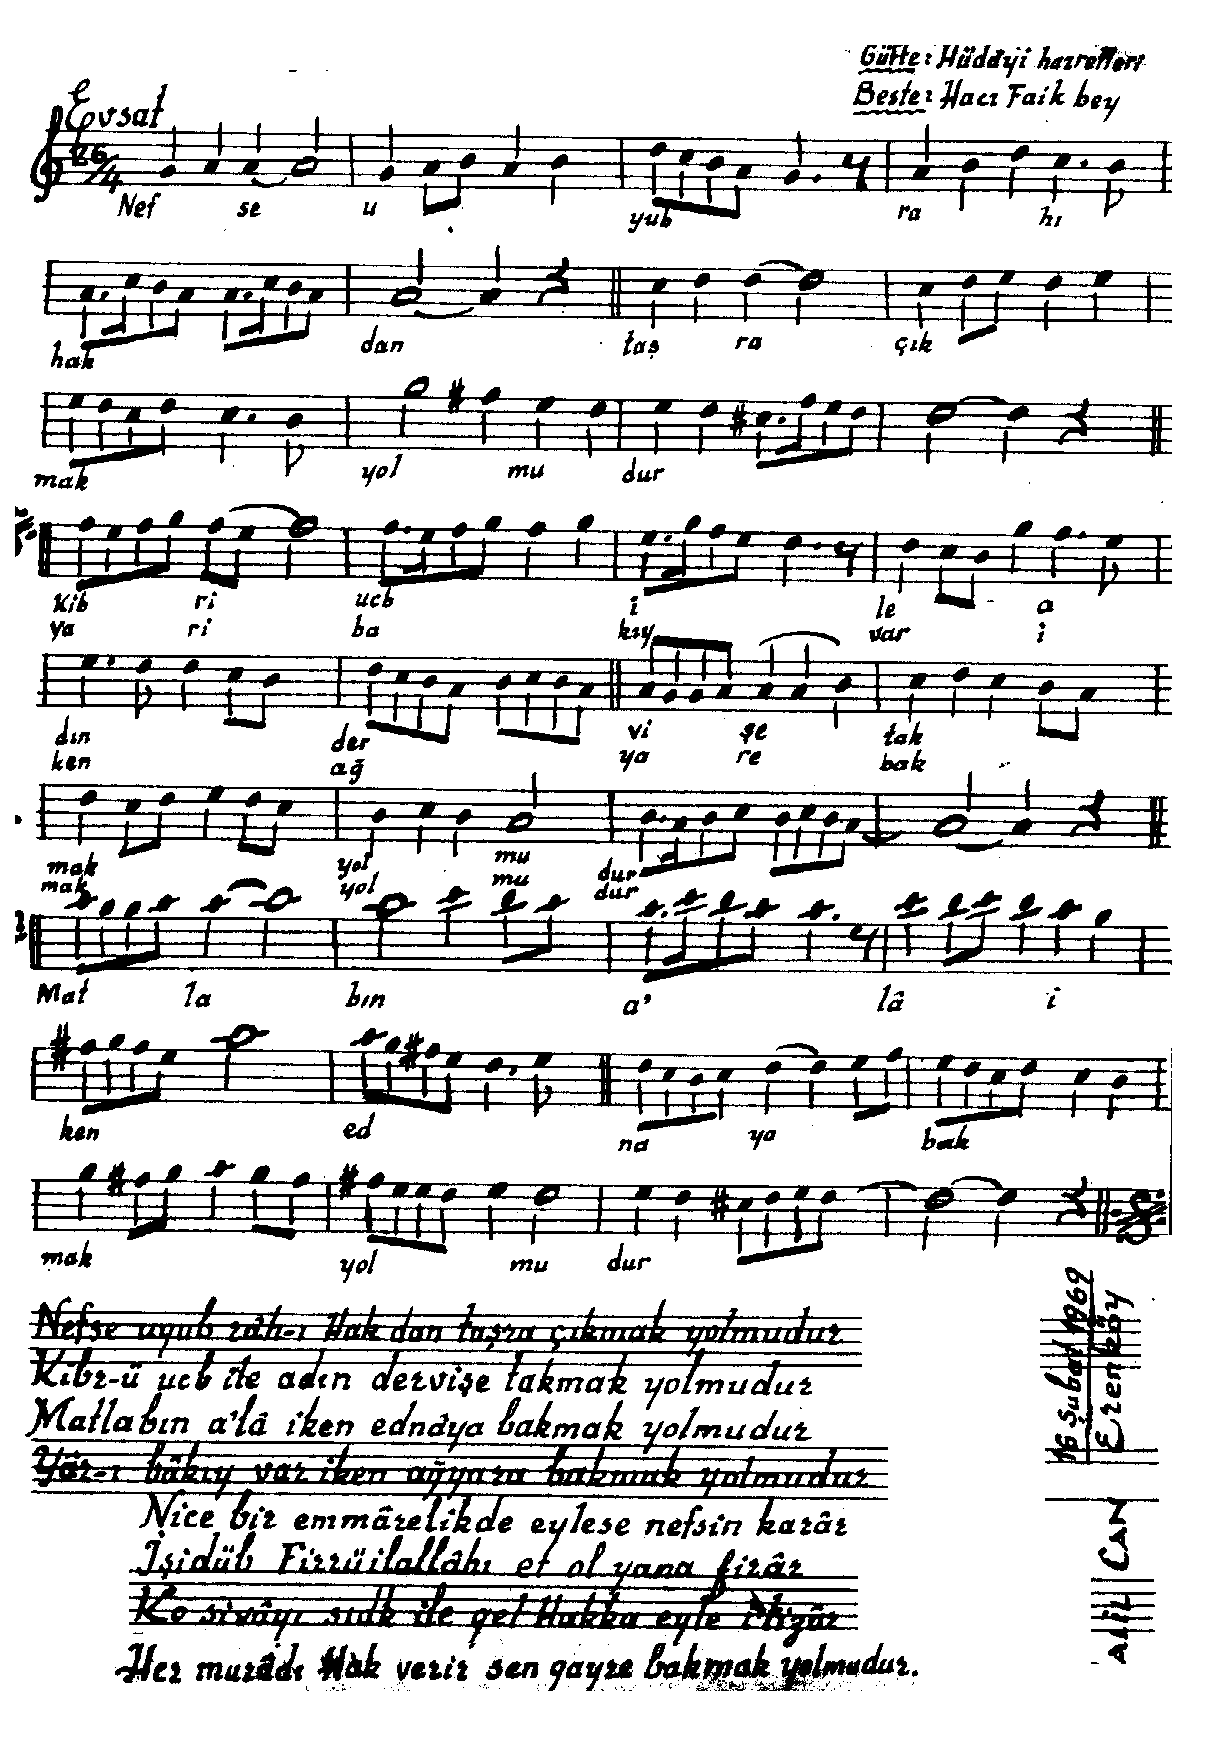 Güfte: Hüdâyi hazretleri
Beste: Hacı Faik bey
Evsat
26/4
Nef se u yub ra hı
hak dan taş ra çık
mak yol mu dur
Kib ri ucb i le a
ya ri ba kıy var i
dın der vi şe tak
ken ağ ya re bak
mak yol mu dur
mak yol mu dur
Mat la bın a' lâ i
ken ed na ya bak
mak yol mu dur
Nefse uyub râh-ı Hak dan taşra çıkmak yolmudur
Kibr-ü ucb ile adın dervişe takmak yolmudur
Matlabın a'lâ iken ednâya bakmak yolmudur
Yâr-ı bâkıy var iken ağyara bakmak yolmudur
Nice bir emmârelikde eylese nefsin karâr
İşidüb Firrüilallâhı et ol yana firâr
Ko sivâyı sıdk ile gel Hakka eyle
Her murâdı Hak verir sen gayre bakmak yolmudur.
16 Şubat 1969
Erenköy
Halil CAN